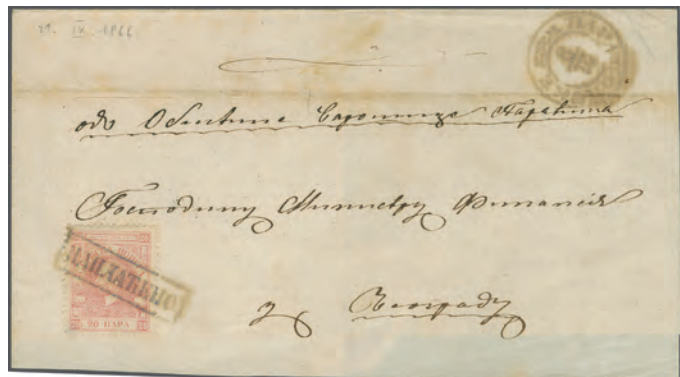 21. IX. 1866
одъ Обштине Варошице Параћина
Господину Министру Финансія
у Београду
НАПЛАЋЕНО
20 ПАРА